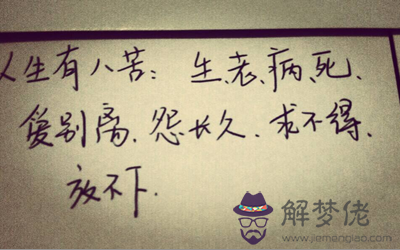 人生有八苦：生、老、病、死、
爱别离、怨长久、求不得、
放不下.
解梦佬
www.jiemenglao.com